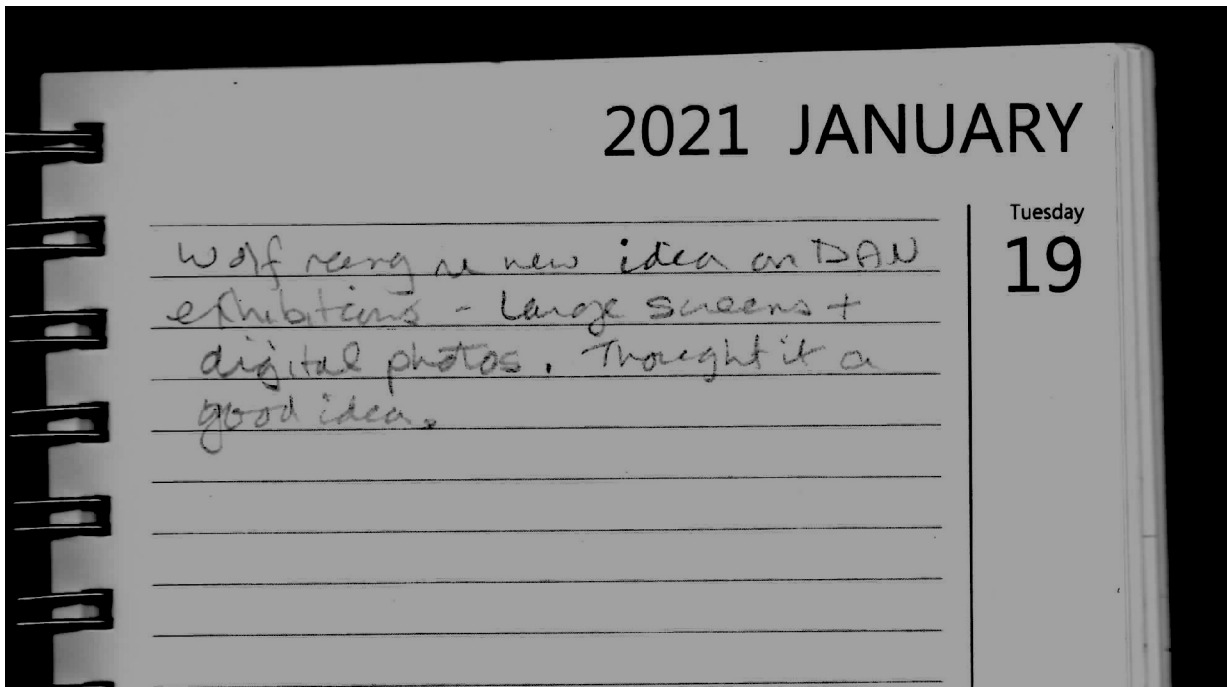 2021 JANUARY
Tuesday
19
Wolf re new idea on DAN
exhibitions - Large screens +
digital photos. Thought it a
good idea.